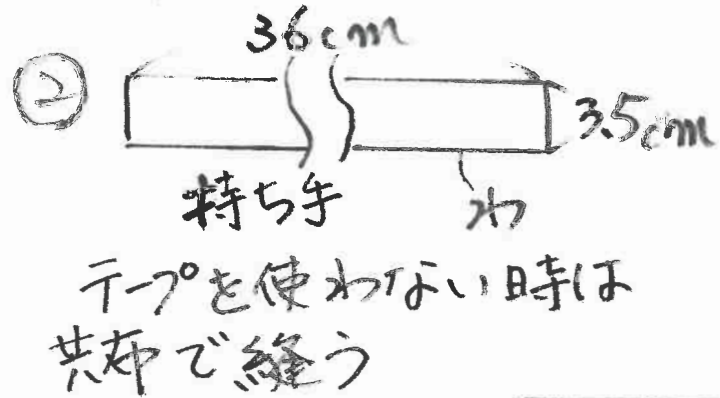 36cm
② 3.5cm
持ち手 わ
テープを使わない時は
共布で縫う